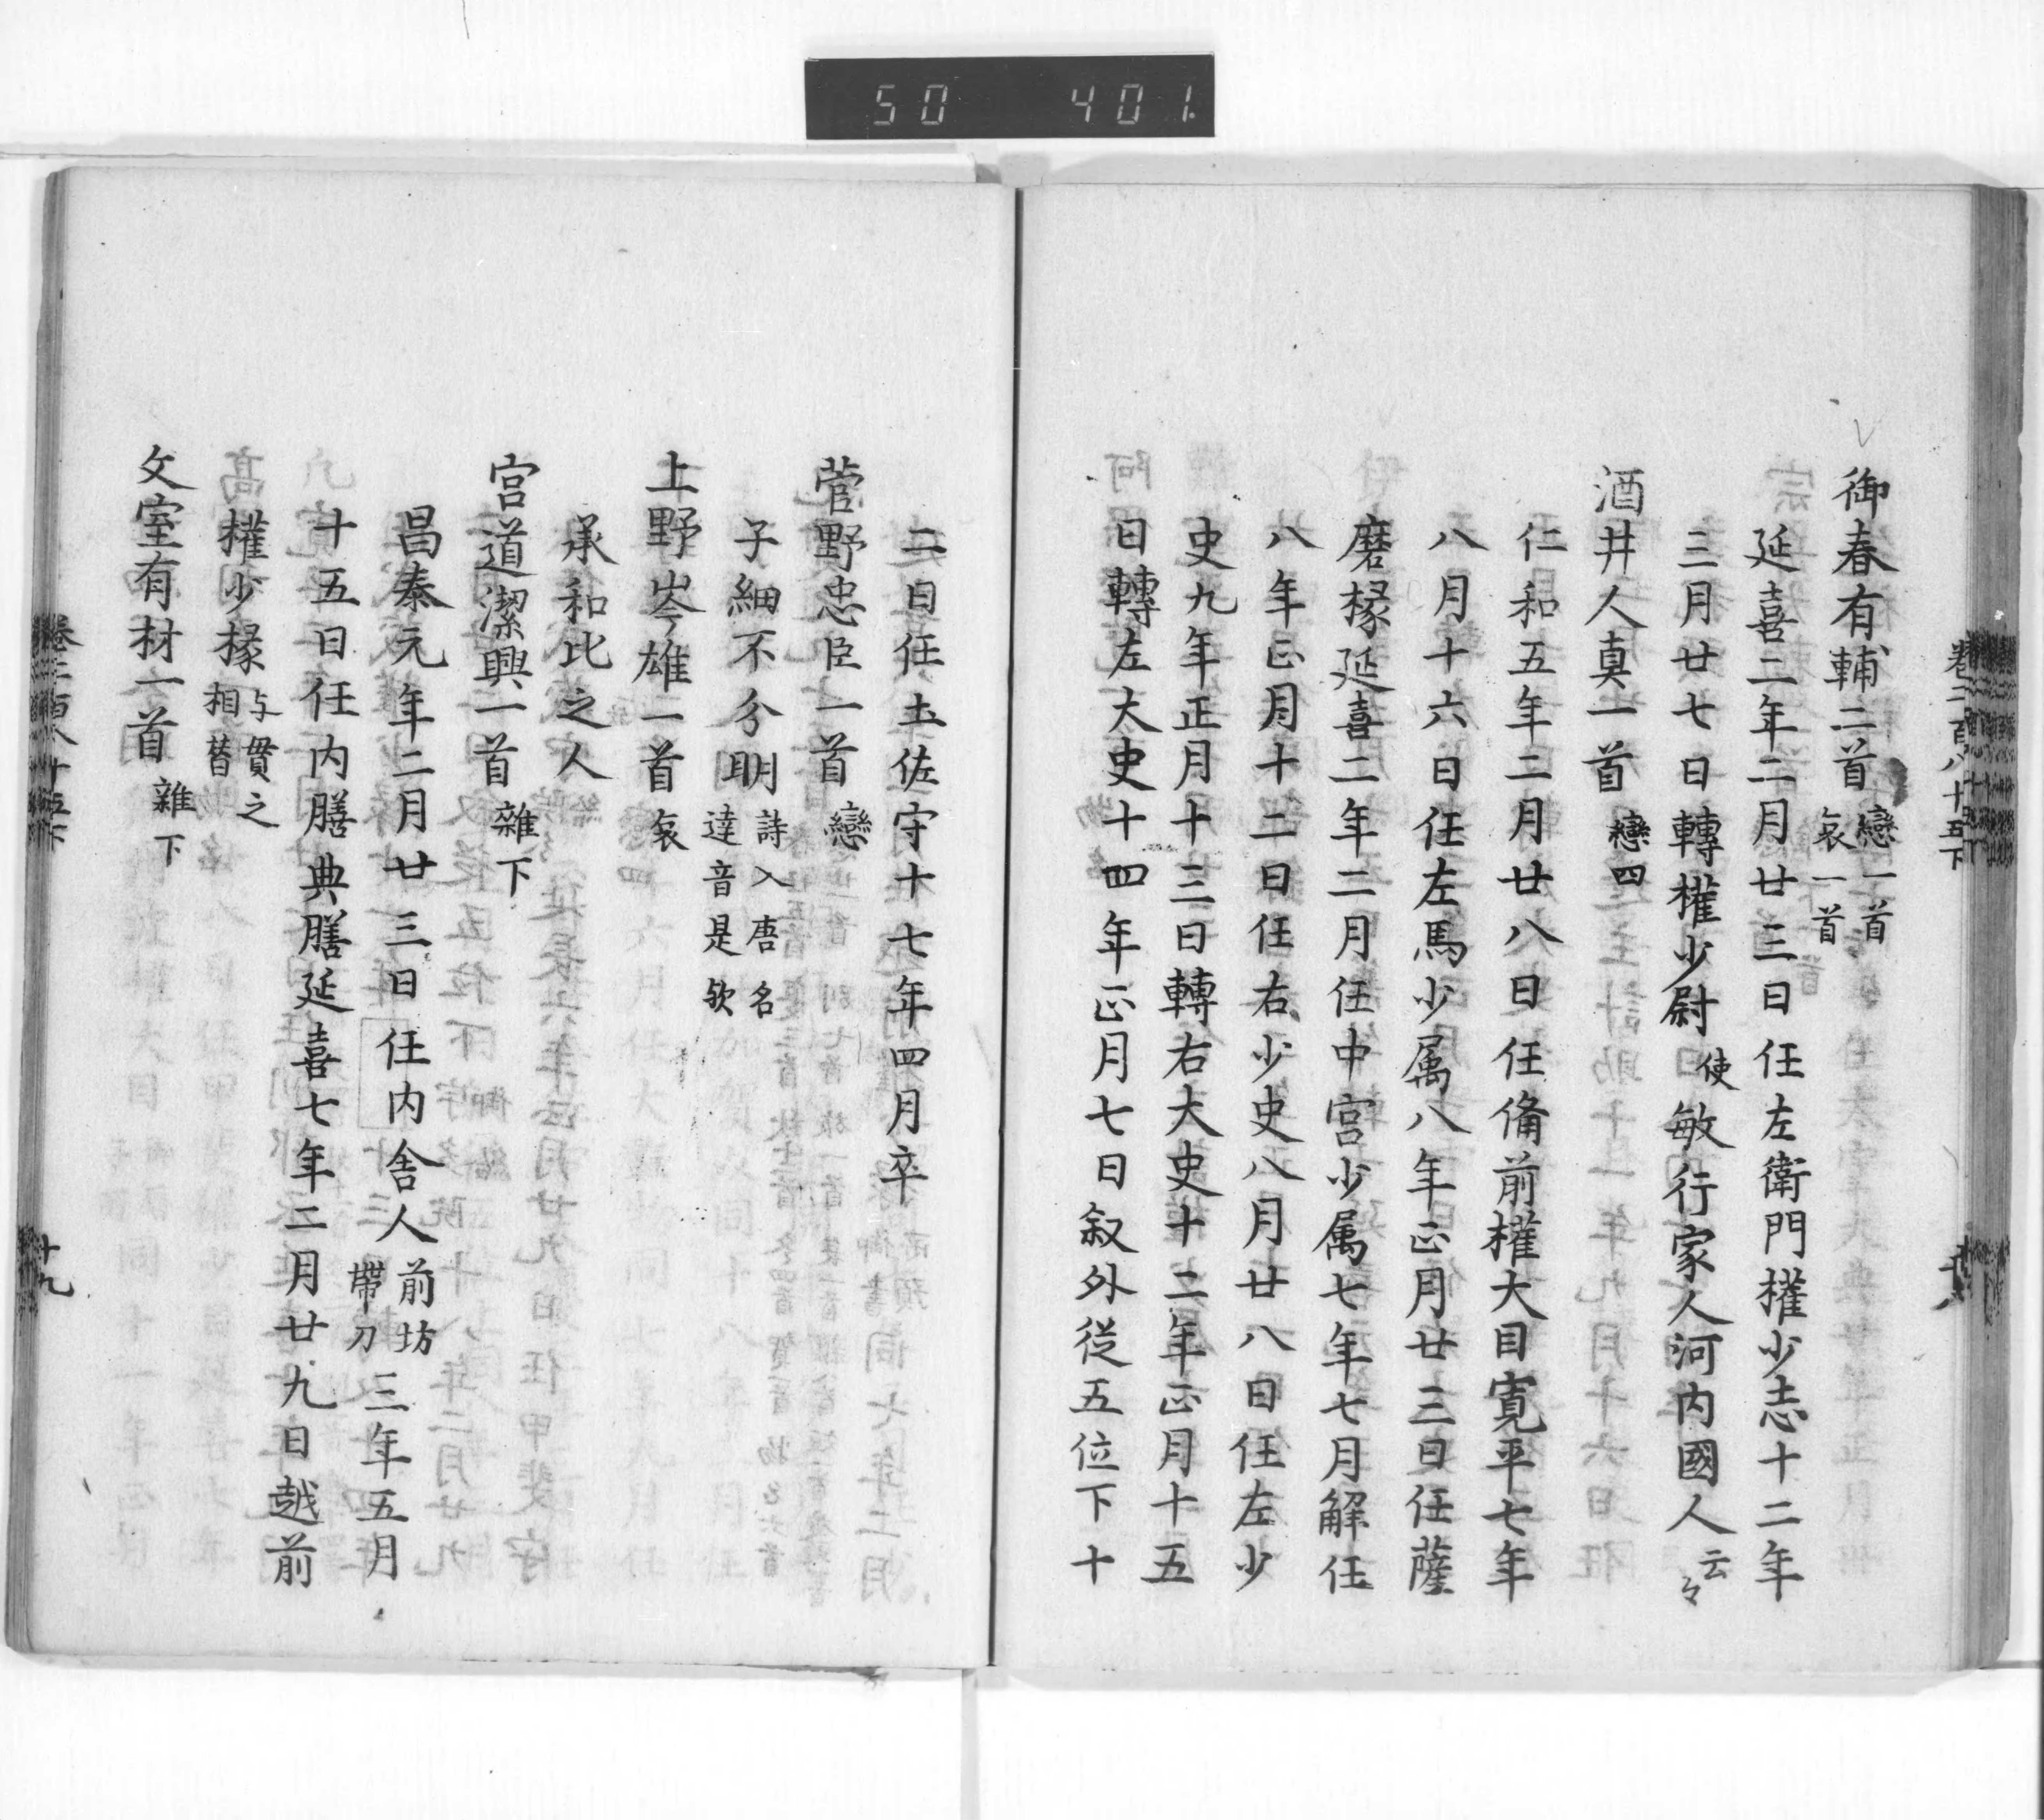 50 401.
卷二百八十五下
御春有輔二首 戀一首 哀一首
延喜二年二月廿三日任左衛門權少志十二年
三月廿七日轉權少尉使敏行家人河内國人云々
酒井人真一首 戀四
仁和五年二月廿八日任備前權大目寛平七年
八月十六日任左馬少属八年正月廿三日任薩
磨掾延喜二年二月任中宮少属七年七月解任
八年正月十二日任右少史八月廿八日任左少
史九年正月十三日轉右大史十二年正月十五
日轉左大史十四年正月七日叙外従五位下十
二日任土佐守十七年四月卒
菅野忠臣一首 戀
子細不分明 詩入唐名 達音是欤
上野岑雄一首 哀
承和比之人
宮道潔興一首 雜下
昌泰元年二月廿三日任内舎人 前坊 帶刀 三年五月
十五日任内膳典膳延喜七年二月廿九日越前
權少掾 与貫之 相替
文室有材一首 雜下
卷二百八十五下
十九